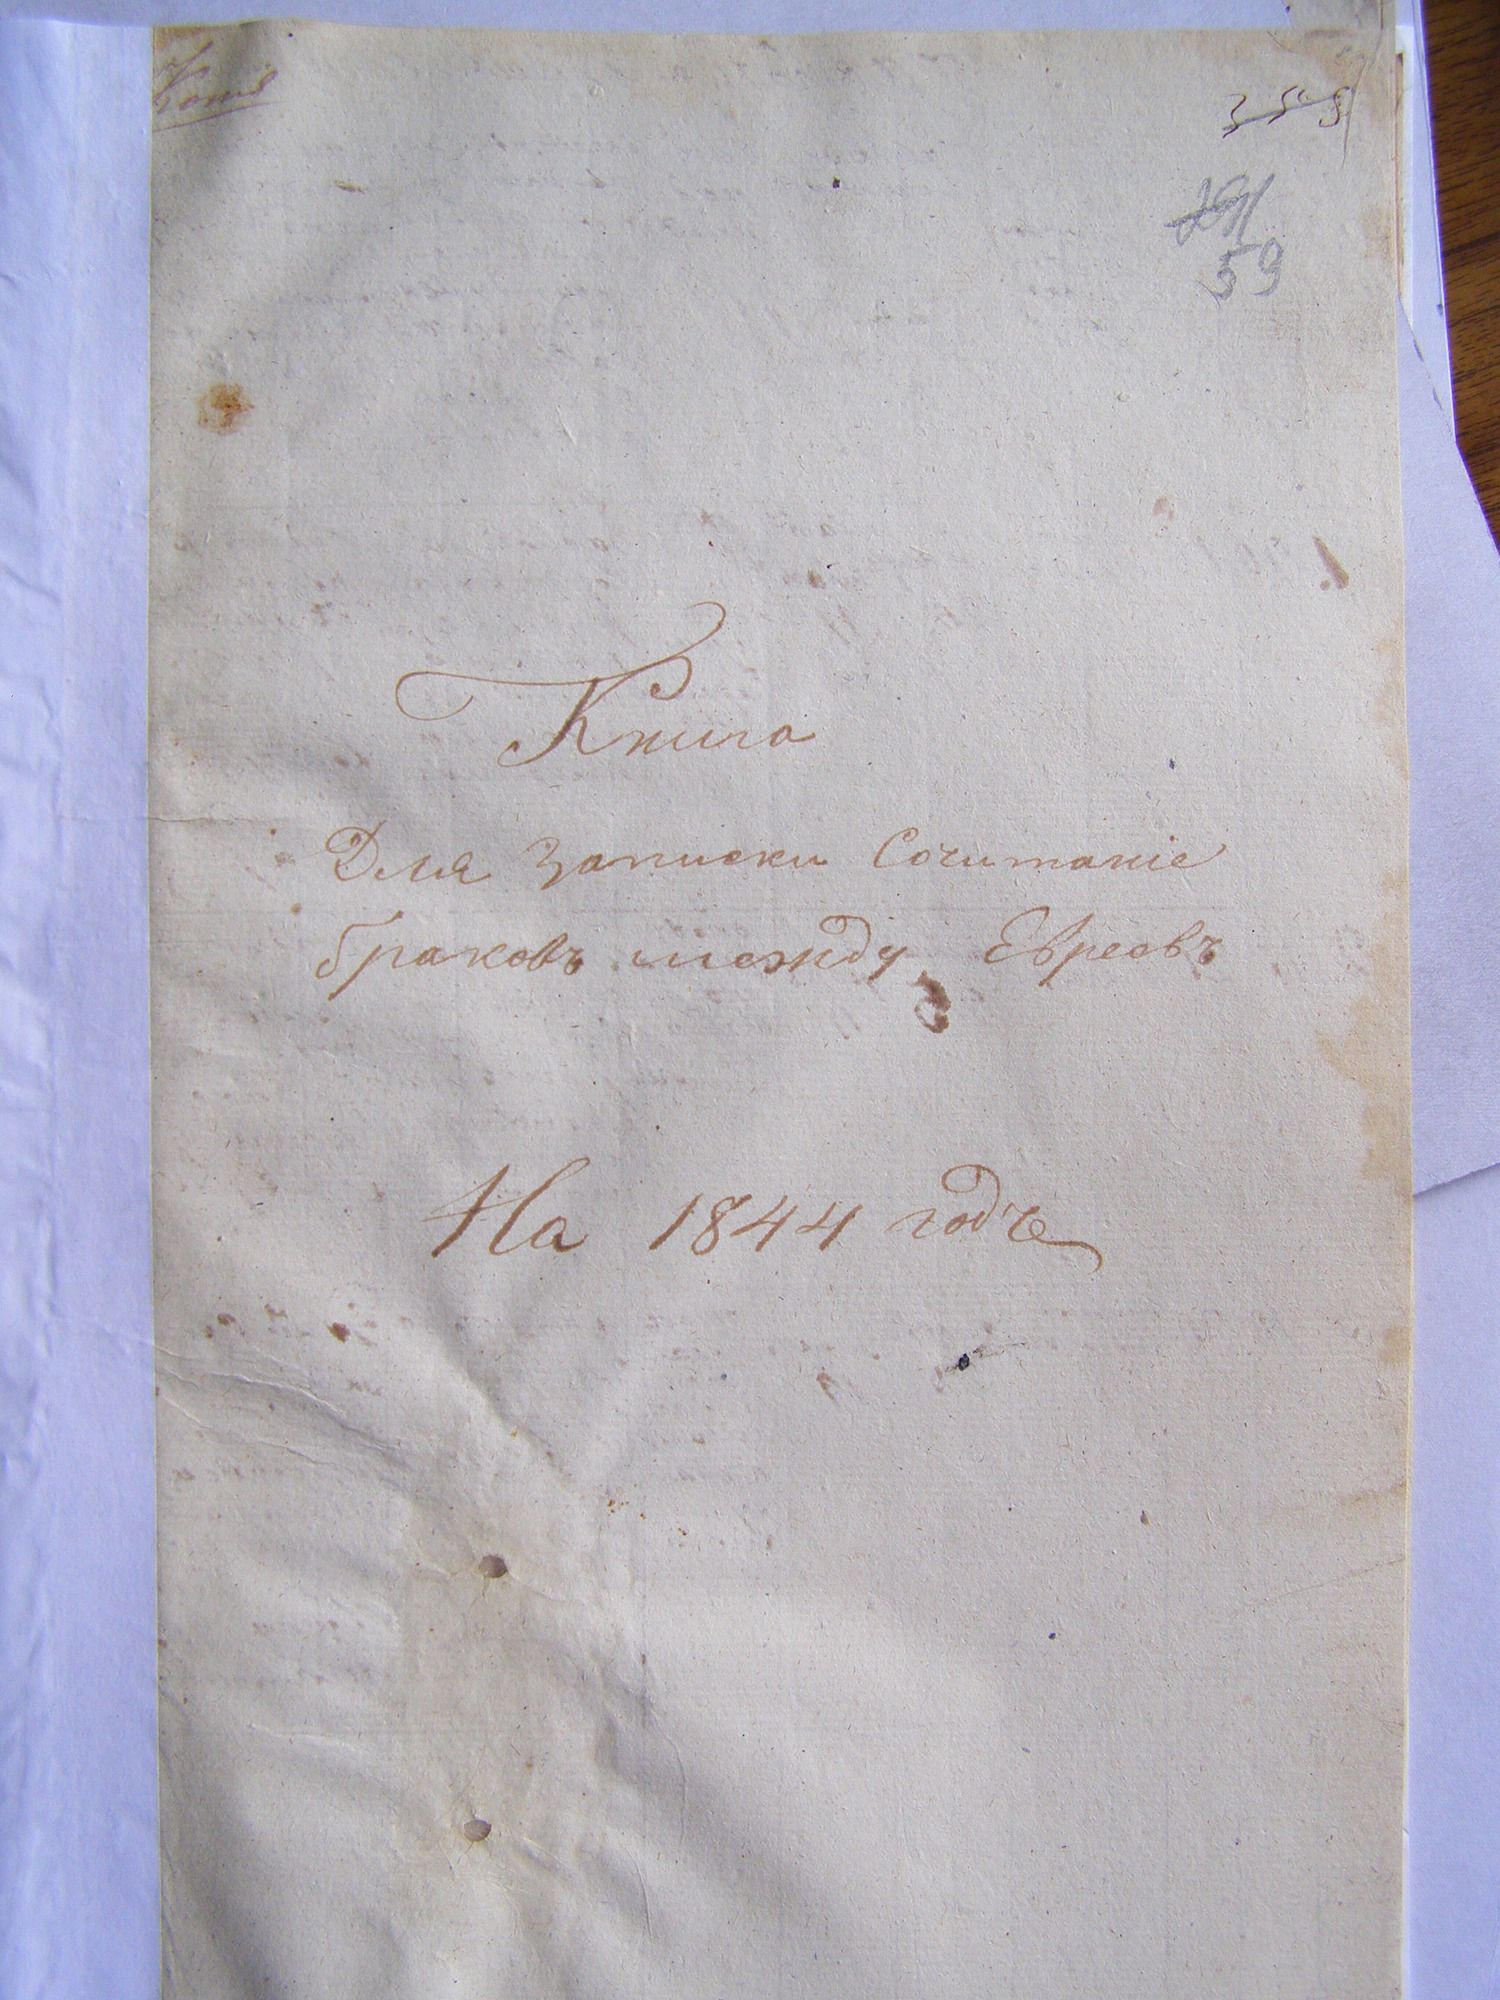 Копія
355
59
Книга
Для Записки Сочитаніе
браковъ между Евреевъ
На 1844 годъ